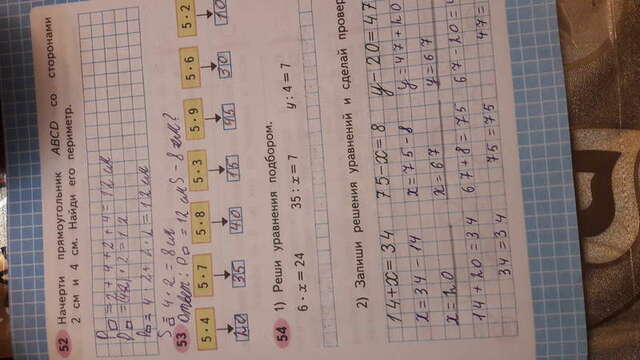 52 Начерти прямоугольник ABCD со сторонами
2 см и 4 см. Найди его периметр.
P▭ = 2 + 4 + 2 + 4 = 12 см
P▭ = (4+2) · 2 = 12
P▭ = 4 · 2 + 2 · 2 = 12 см
S▭ = 4 · 2 = 8 см
53 Ответ: P▭ = 12 см S - 8 см²
5 · 4 5 · 7 5 · 8 5 · 3 5 · 9 5 · 6 5 · 2
20 35 40 15 45 30 10
54 1) Реши уравнения подбором.
6 · x = 24 35 : x = 7 y : 4 = 7
2) Запиши решения уравнений и сделай провер
14+x=34 75-x=8 y-20=47
x=34-14 x=75-8 y=47+20
x=20 x=67 y=67
14+20=34 67+8=75 67-20=4
34=34 75=75 47=